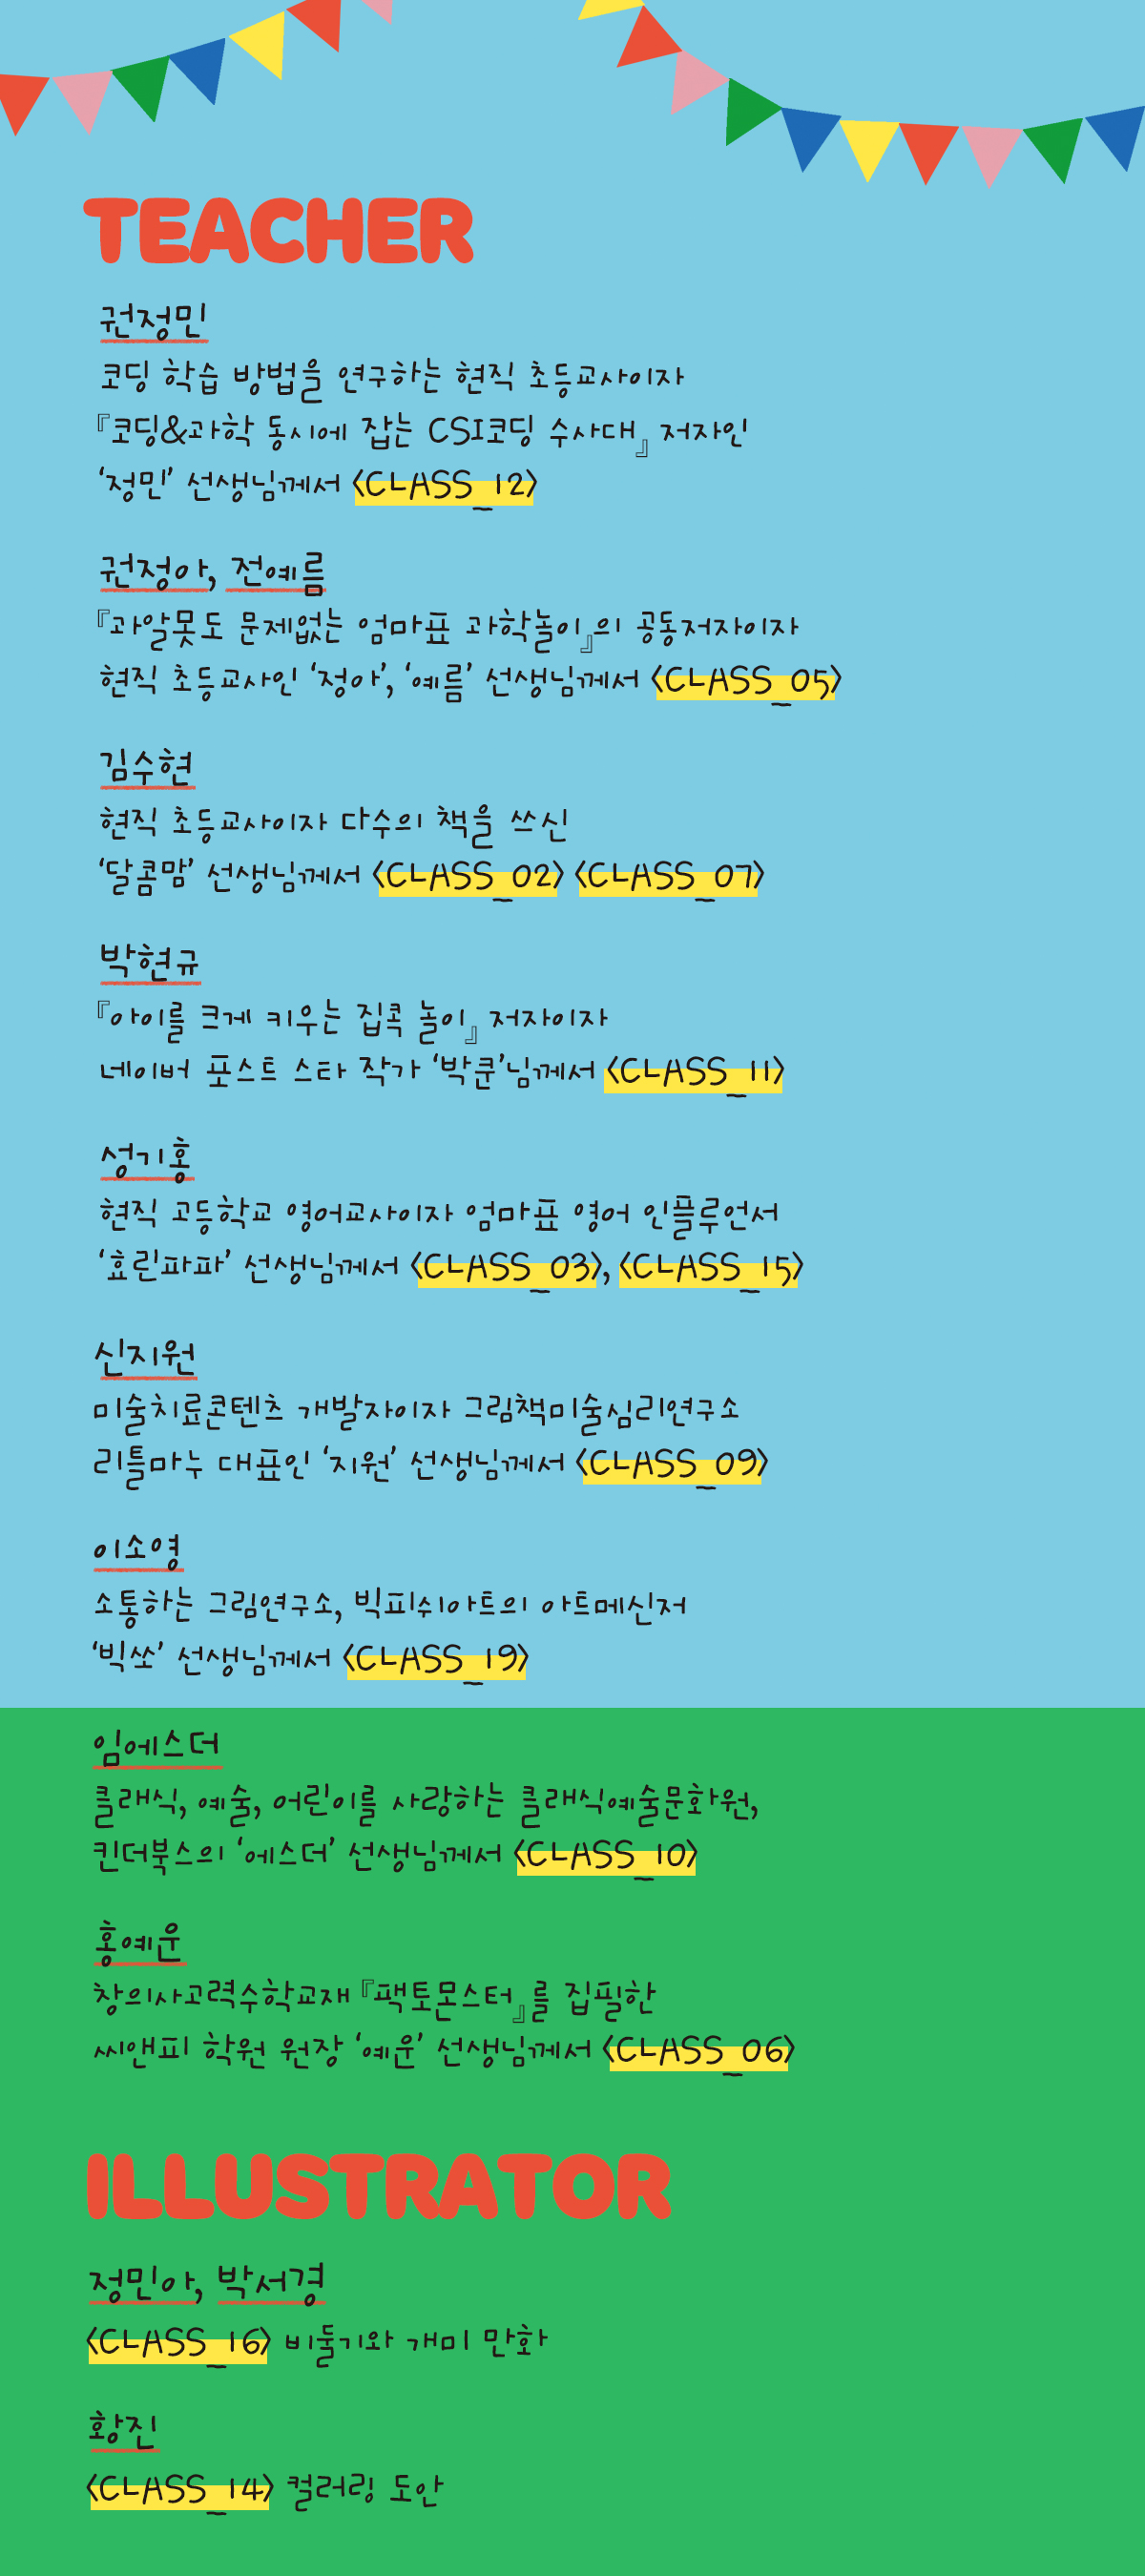 TEACHER
권정민
코딩 학습 방법을 연구하는 현직 초등교사이자
『코딩&과학 동시에 잡는 CSI코딩 수사대』 저자인
‘정민’ 선생님께서 <CLASS_12>
권정아, 전예름
『과알못도 문제없는 엄마표 과학놀이』의 공동저자이자
현직 초등교사인 ‘정아’, ‘예름’ 선생님께서 <CLASS_05>
김수현
현직 초등교사이자 다수의 책을 쓰신
‘달콤맘’ 선생님께서 <CLASS_02> <CLASS_07>
박현규
『아이를 크게 키우는 집콕 놀이』 저자이자
네이버 포스트 스타 작가 ‘박쿤’님께서 <CLASS_11>
성기홍
현직 고등학교 영어교사이자 엄마표 영어 인플루언서
‘효린파파’ 선생님께서 <CLASS_03>, <CLASS_15>
신지원
미술치료콘텐츠 개발자이자 그림책미술심리연구소
리틀마누 대표인 ‘지원’ 선생님께서 <CLASS_09>
이소영
소통하는 그림연구소, 빅피쉬아트의 아트메신저
‘빅쏘’ 선생님께서 <CLASS_19>
임에스더
클래식, 예술, 어린이를 사랑하는 클래식예술문화원,
킨더북스의 ‘에스더’ 선생님께서 <CLASS_10>
홍예운
창의사고력수학교재 『팩토몬스터』를 집필한
씨앤피 학원 원장 ‘예운’ 선생님께서 <CLASS_06>
ILLUSTRATOR
정민아, 박서경
<CLASS_16> 비둘기와 개미 만화
황진
<CLASS_14> 컬러링 도안